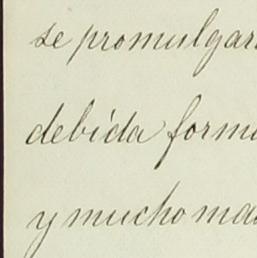 se promulgar
debida form
y mucho ma